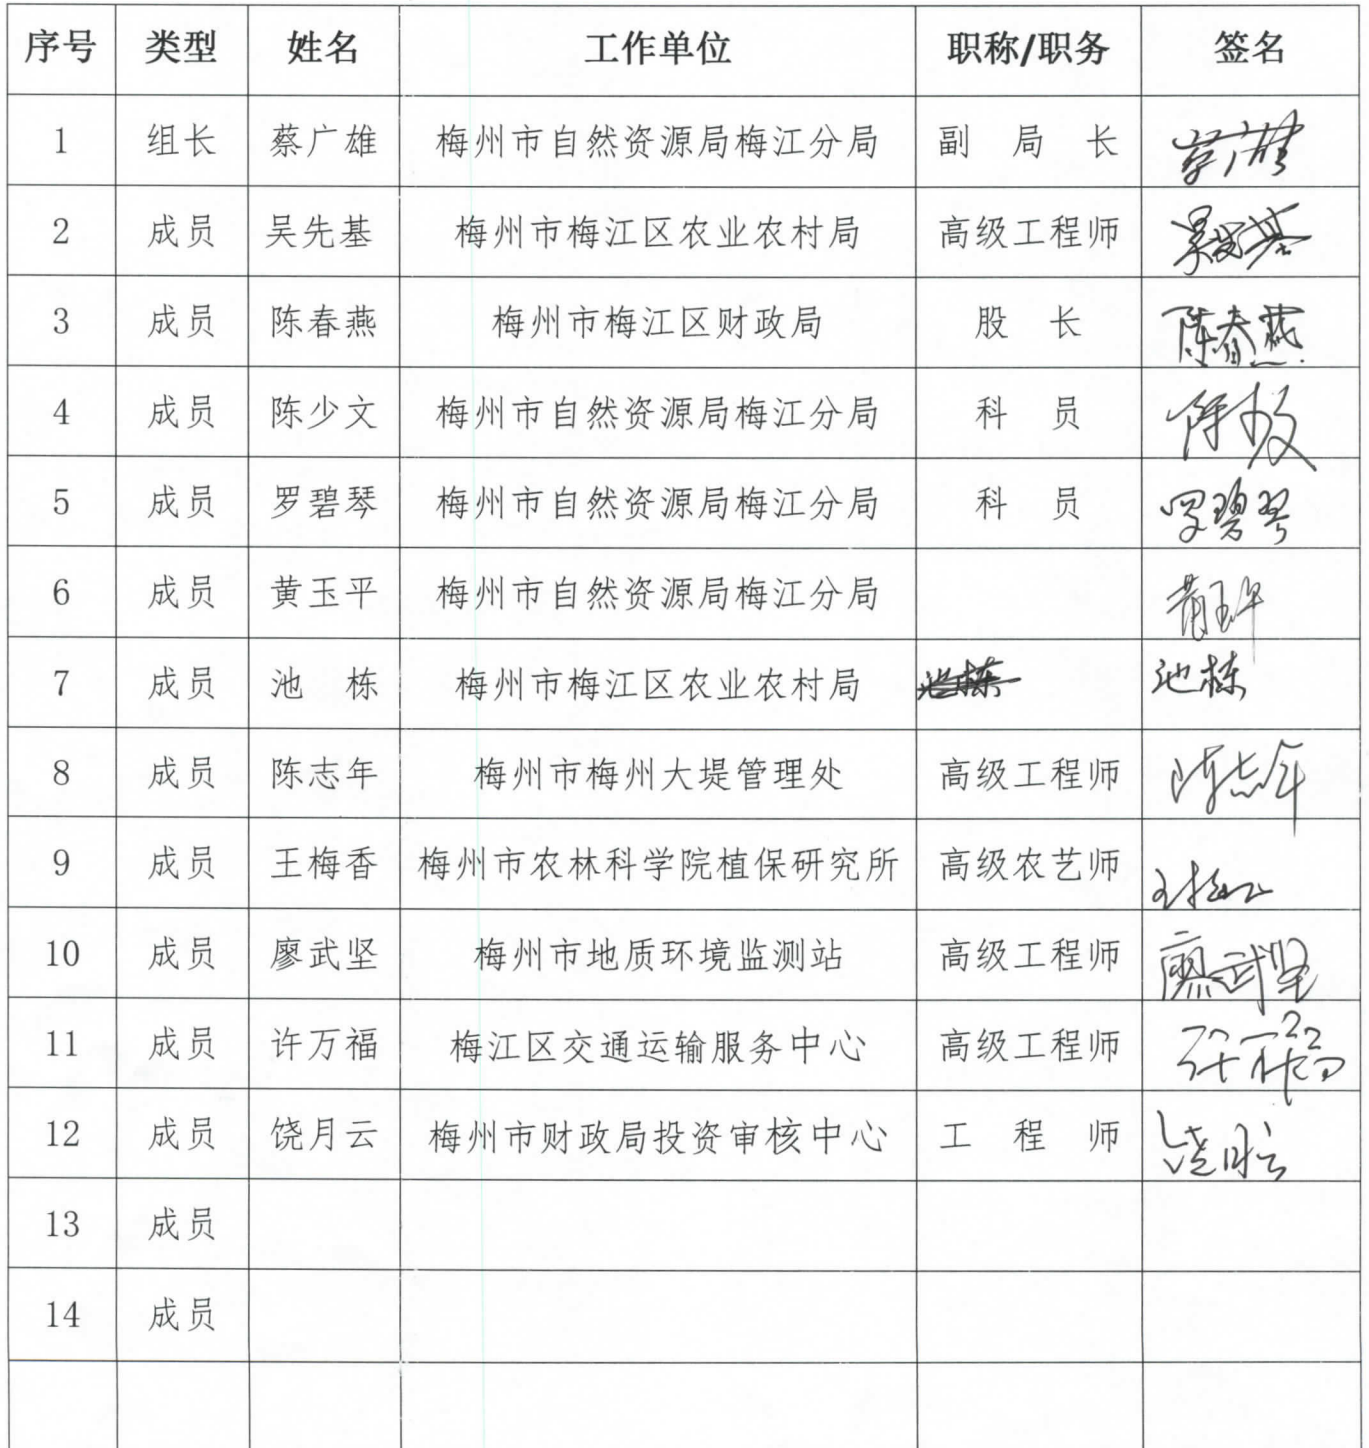 序号 类型 姓名 工作单位 职称/职务 签名
1 组长 蔡广雄 梅州市自然资源局梅江分局 副 局 长 蔡广雄
2 成员 吴先基 梅州市梅江区农业农村局 高级工程师 吴先基
3 成员 陈春燕 梅州市梅江区财政局 股 长 陈春燕
4 成员 陈少文 梅州市自然资源局梅江分局 科 员 陈少文
5 成员 罗碧琴 梅州市自然资源局梅江分局 科 员 罗碧琴
6 成员 黄玉平 梅州市自然资源局梅江分局 黄玉平
7 成员 池 栋 梅州市梅江区农业农村局 池栋 池栋
8 成员 陈志年 梅州市梅州大堤管理处 高级工程师 陈志年
9 成员 王梅香 梅州市农林科学院植保研究所 高级农艺师
10 成员 廖武坚 梅州市地质环境监测站 高级工程师 廖武坚
11 成员 许万福 梅江区交通运输服务中心 高级工程师 许万福
12 成员 饶月云 梅州市财政局投资审核中心 工 程 师 饶月云
13 成员
14 成员